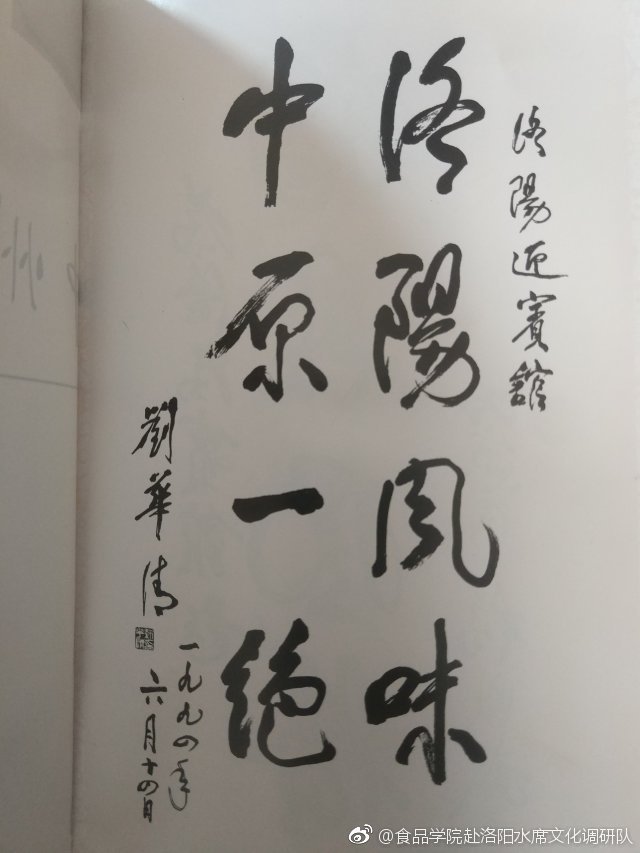 洛陽迎賓館
洛陽風味
中原一绝
劉華清
一九九四年
六月十四日
@食品学院赴洛阳水席文化调研队